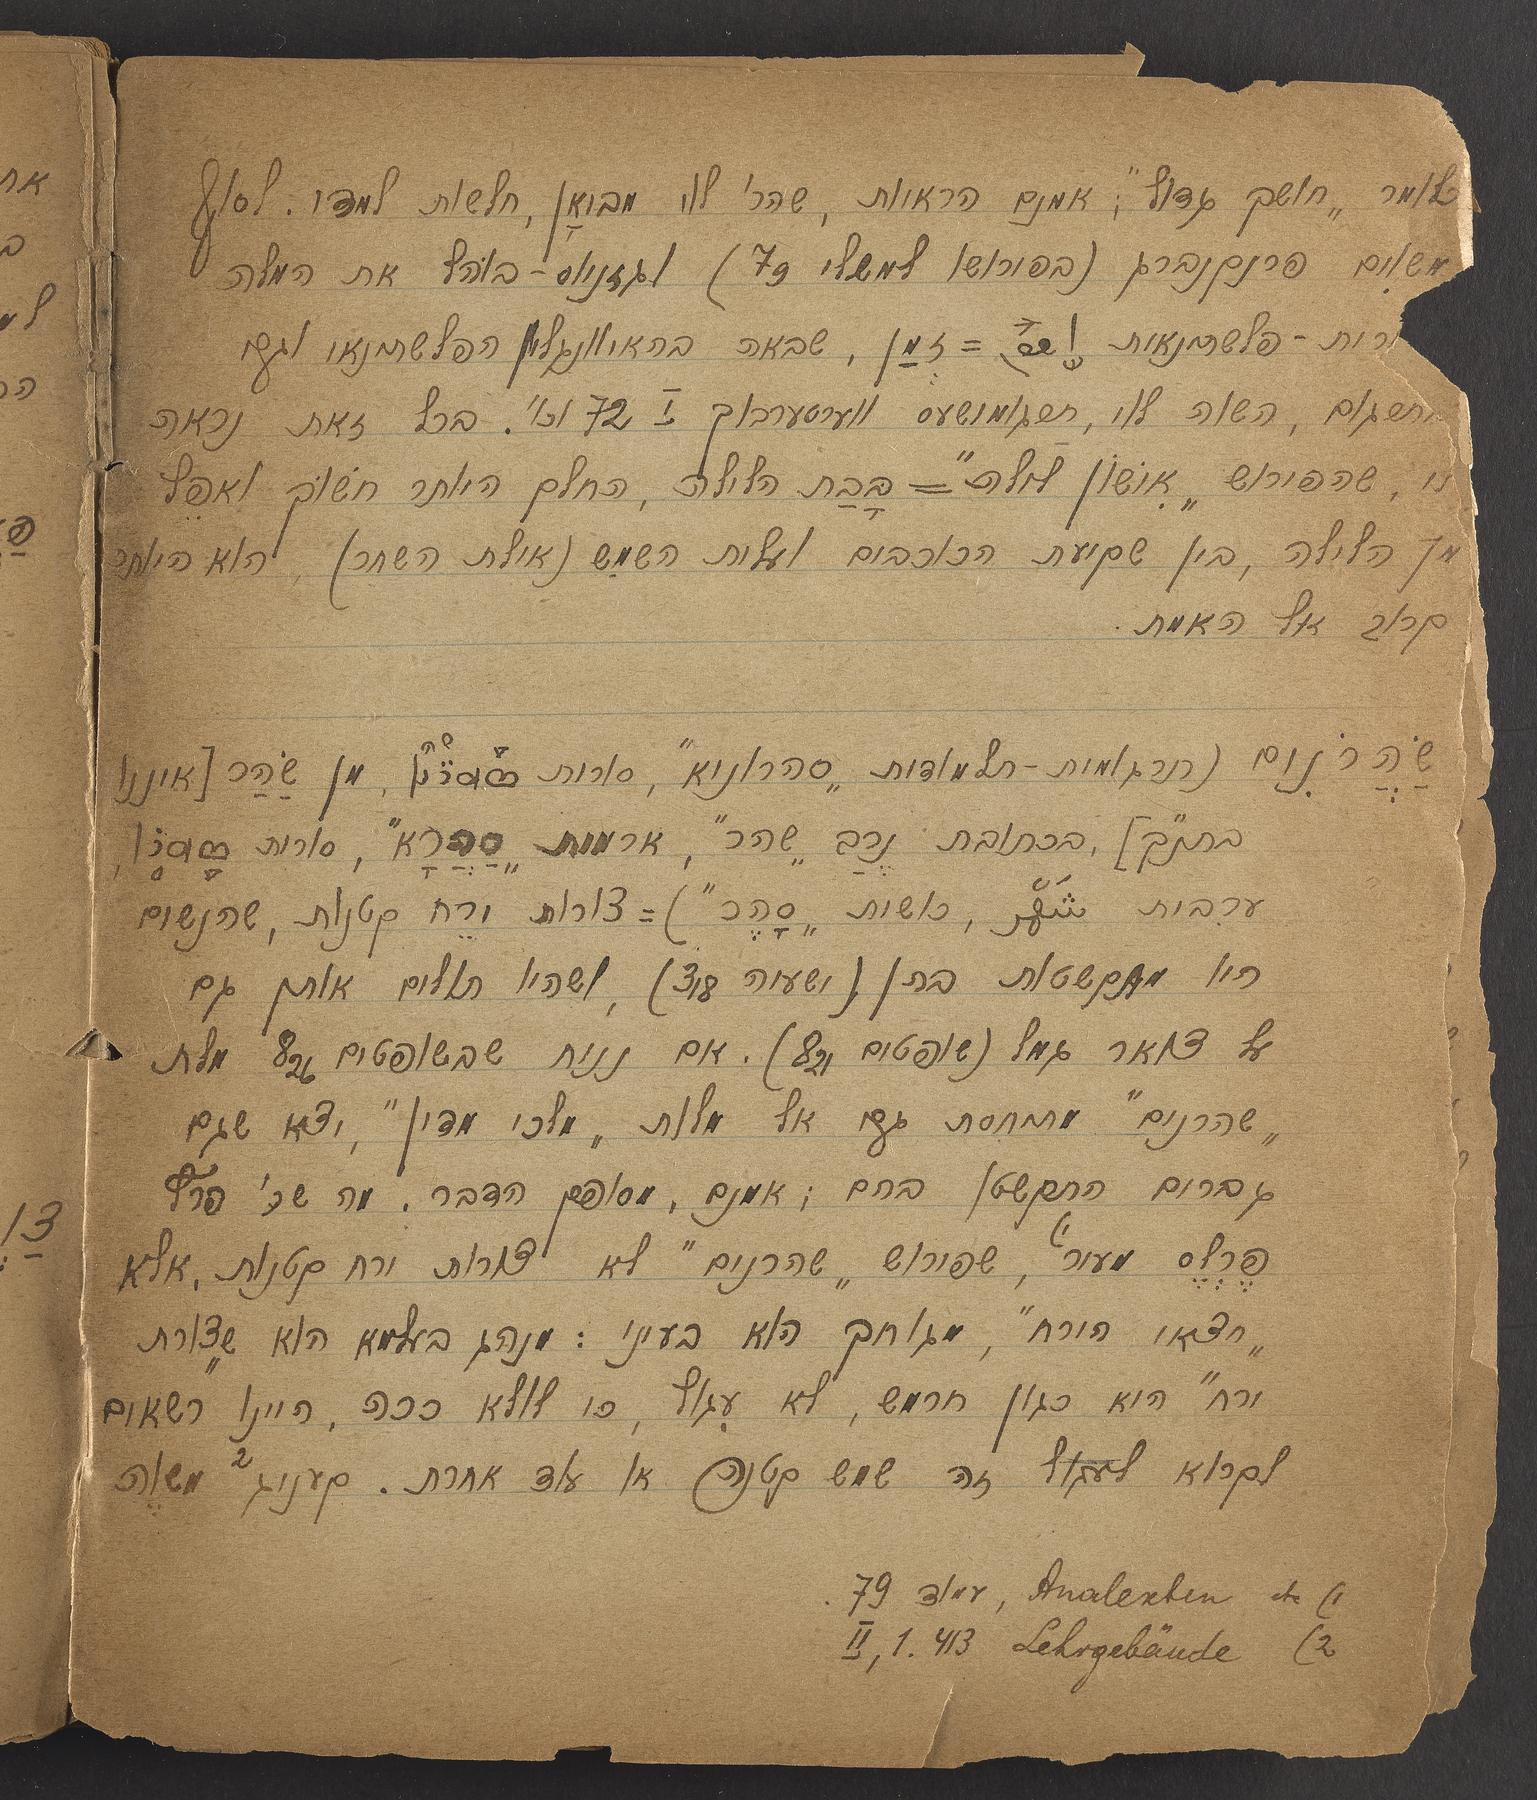 לומר „חושך גדול"; אמנם הראיות, שהר' לוי מביאן, חלשות למדי. לסוף
משוים פרנקנברג (בפירושו למשלי 79) וגזניוס-בוהל את המלה
־רית-פלשתנאית = זְמַן, שבאה בהאיוונגליון הפלשתנאי וגם
השוה לוי, ווערטערבוך I 72 וכו'. בכל זאת נראה
לי, שהפירוש „אִישׁוֹן לילה" = בָּבַת הלילה, החלק היותר חשוֹך ואפל
מן הלילה, בין שקיעת הכוכבים ועלית השמש (אילת השחר), הוא היותר
קרוב אל האמת.
שַׂהֲרֹנִים (תרגומית-תלמודית „סהרוניא", סורית, מן שַׂהַר [איננו
בתנ"ך], בכתובת נֵרַב „שהר", ארמית „סַהֲרָא", סורית
ערבית, כושית „סָהֶר") = צורות ירֵח קטנות, שהנשים
היו מתקשטות בהן (ישעיה 3,18), ושהיו תולים אותן גם
על צואר גמל (שופטים 8,21). אם נניח שבשופטים 8,26 מלת
„שהרנים" מתיחסת גם אל מלות „מלכי מדין", יצא שגם
גברים התקשטו בהם; אמנם, מסופק הדבר. מה שכ' פרץ
פֶּרְלֶס מעיר¹), שפירוש „שהרנים" לא צורות ירח קטנות, אלא
„חצאי הירח", מגוחך הוא בעיני: מנהג בעלמא הוא ש„צורת
ירח" היא כגון חרמש, לא עִגול, כי לולא ככה, היינו רשאים
לקרוא לעגול זה שמש קטנה או עוד אחרת. קעניג² משוֶה
1) Analekten etc, עמוד 79.
2) Lehrgebäude II, 1. 413